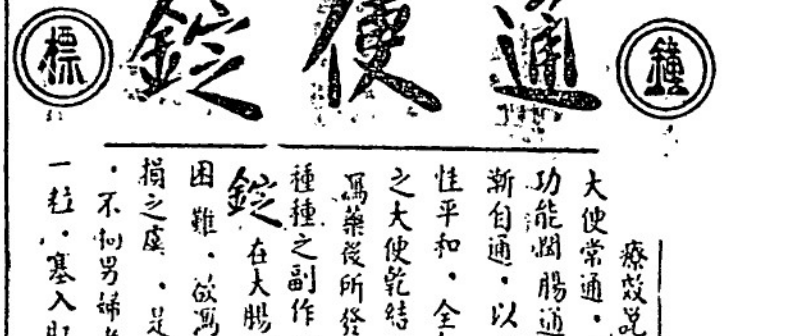 鐘
通便錠
標
療
大便常通。
功能潤腸通
漸自通。以
性平和。全
之大便乾結
瀉藥後所發
種種之副作
錠在大腸
困難。欲瀉
損之虞。是
。不拘男婦
一粒。塞入肛